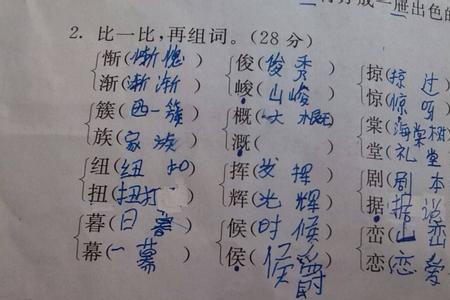 出色的
2. 比一比,再组词。(28 分)
惭(惭愧) 俊(俊秀) 掠(掠过
渐(渐渐) 峻(山峻) 惊(惊呀
簇(西一簇) 概(大概) 棠(海棠树
族(家族) 溉( ) 堂(礼堂
纽(纽扣) 挥(发挥) 剧(剧本
扭(扭打) 辉(光辉) 据(据说
暮(日暮) 候(时候) 峦(山峦
幕(一幕) 侯(侯爵) 恋(恋爱